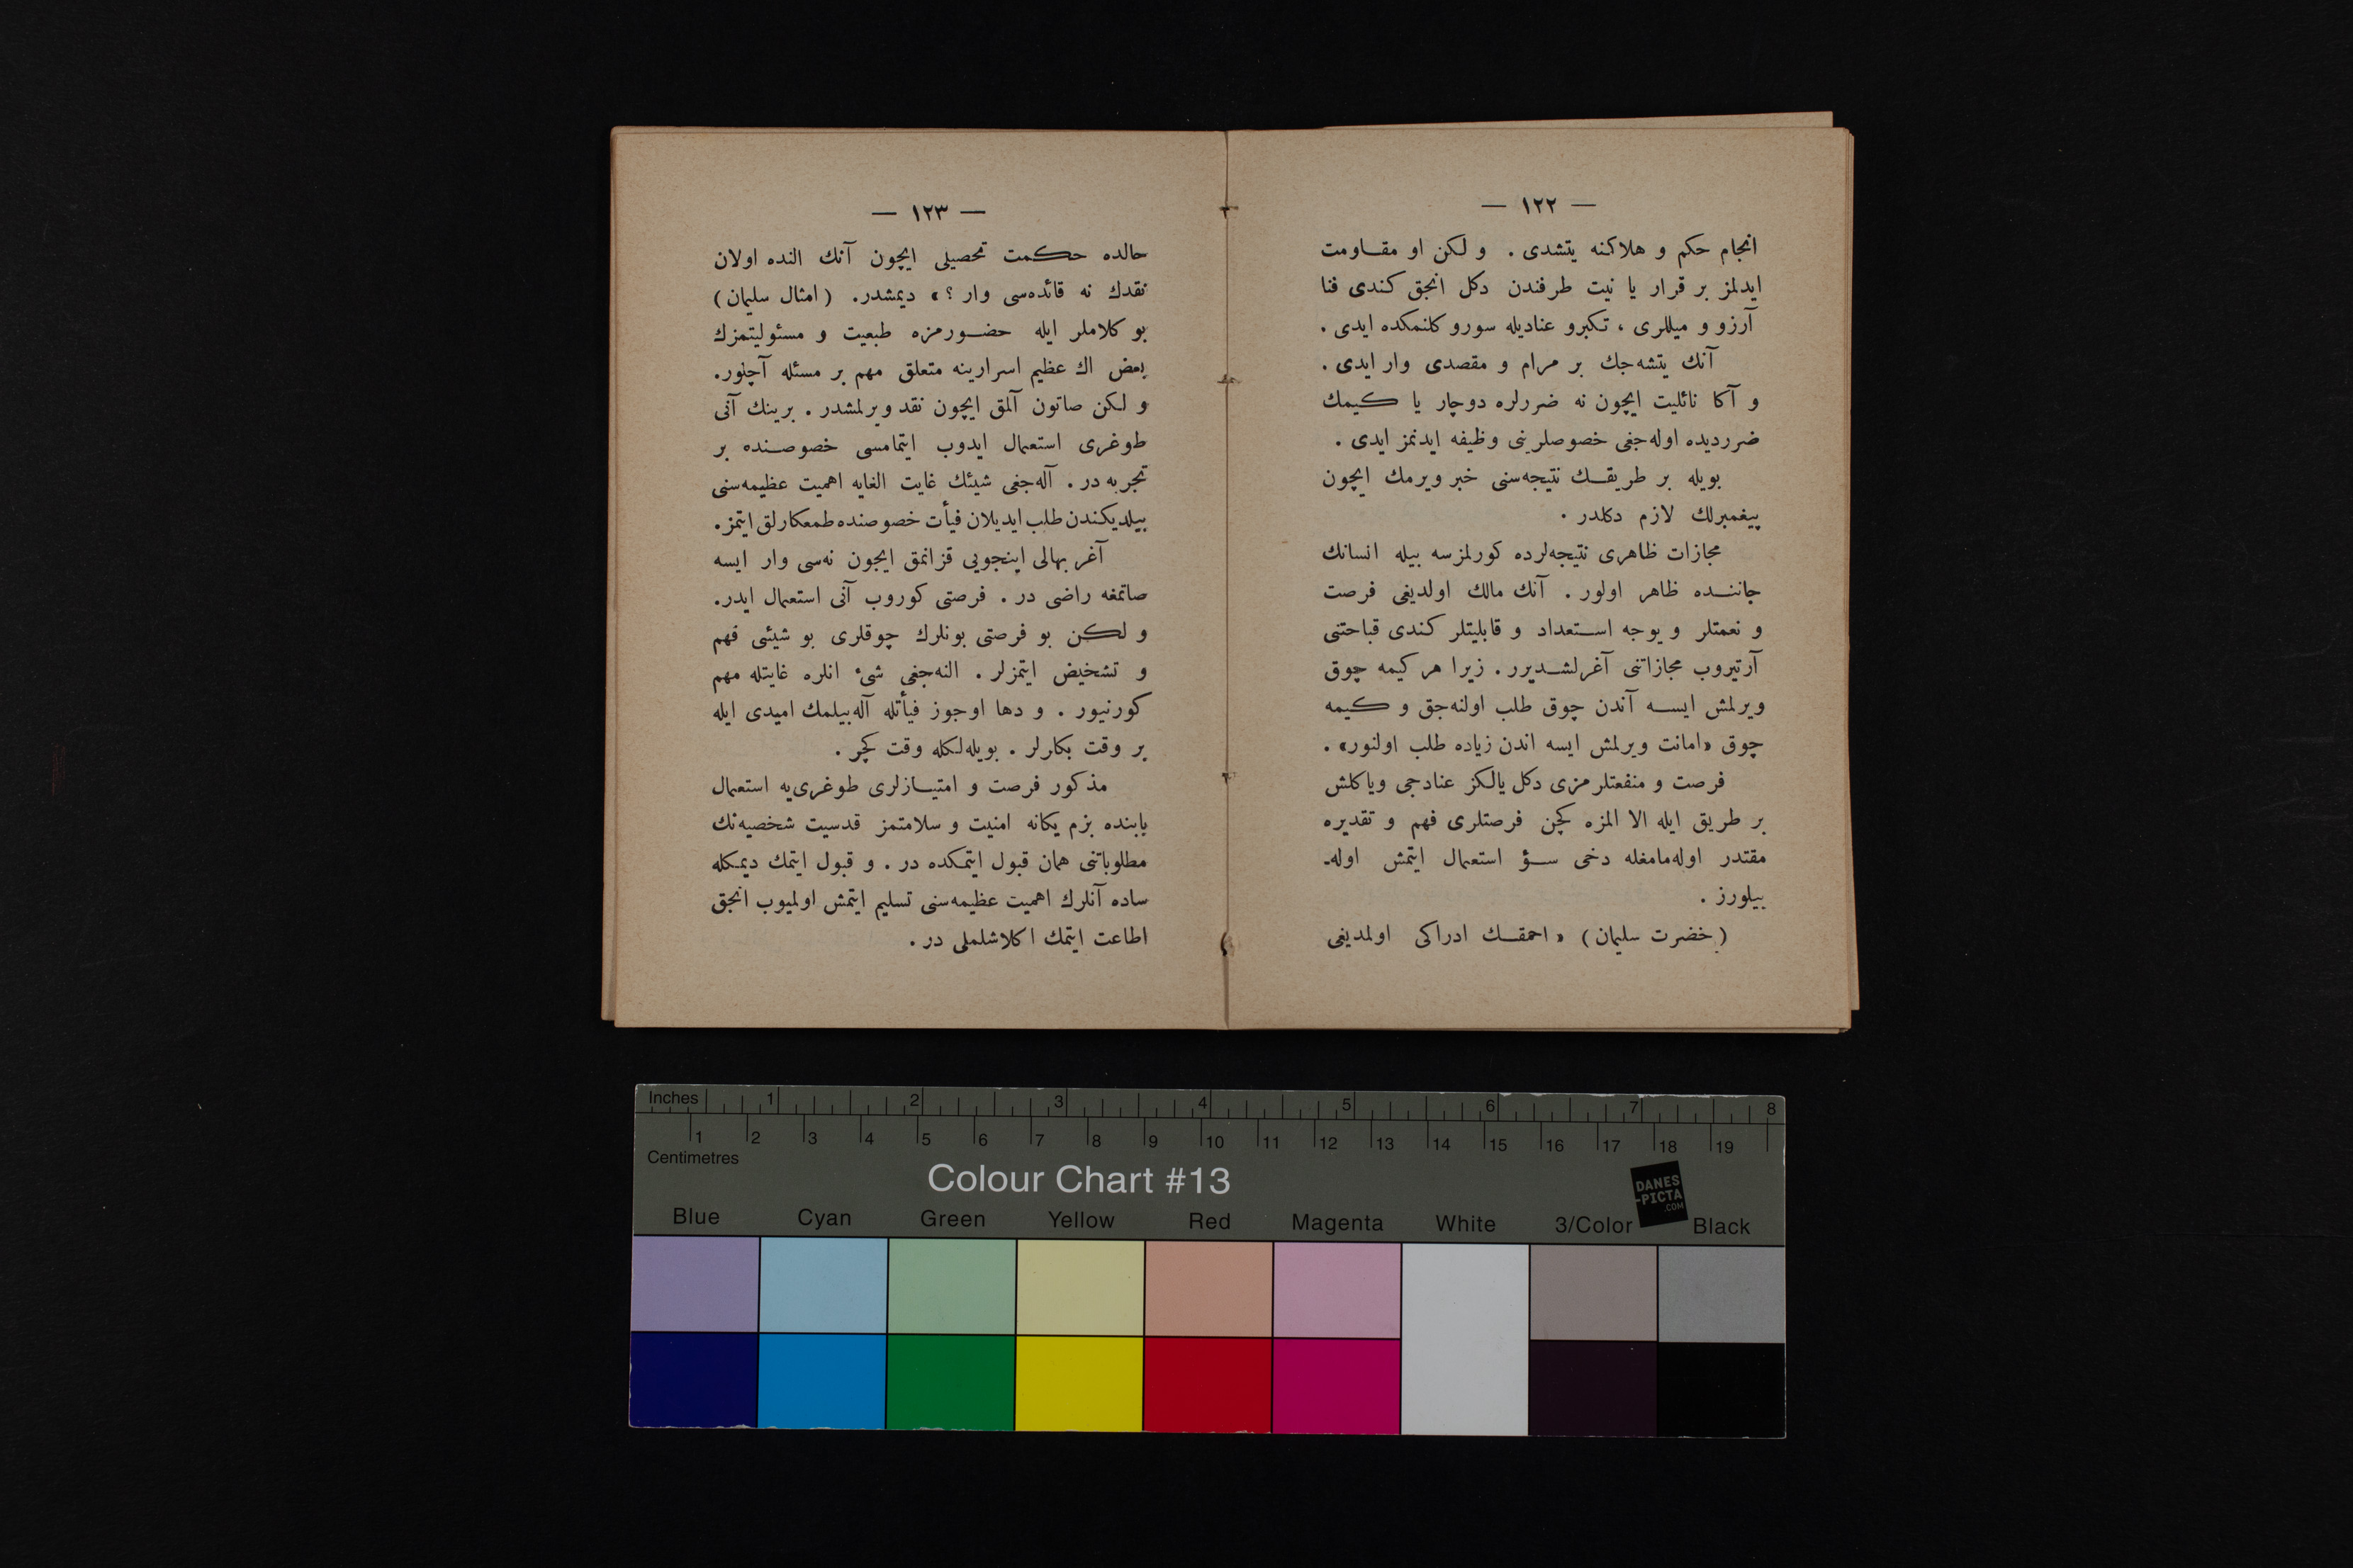 — ١٢٢ —
انجام حكم و هلاكنه يتشدى . و لكن او مقــاومت
ايدلمز بر قرار يا نيت طرفندن دكل انجق كندى فنا
آرزو و ميللرى ، تكبرو عناديله سورو كلنمكده ايدى .
آنك يتشه‌جك بر مرام و مقصدى وار ايدى .
و آكا نائليت ايچون نه ضررلره دوچار يا كيمك
ضررديده اوله‌جغى خصوصلرينى وظيفه ايدنمز ايدى .
بويله بر طريقــك نتيجه‌سنى خبر ويرمك ايچون
پيغمبرلك لازم دكلدر .
مجازات ظاهرى نتيجه‌لرده كورلمزسه بيله انسانك
جاننــده ظاهر اولور . آنك مالك اولديغى فرصت
و نعمتلر و يوجه اســتعداد و قابليتلر كندى قباحتنى
آرتيروب مجازاتنى آغرلشــديرر . زيرا هر كيمه چوق
ويرلمش ايســه آندن چوق طلب اولنه‌جق و كيمه
چوق «امانت ويرلمش ايسه اندن زياده طلب اولنور» .
فرصت و منفعتلرمزى دكل يالكز عنادجى وياكلش
بر طريق ايله الا المزه كچن فرصتلرى فهم و تقديره
مقتدر اوله‌مامغله دخى ســؤ استعمال ايتمش اوله‌ـ
بيلورز .
(خضرت سليمان) « احمقــك ادراكى اولمديغى
— ١٢٣ —
حالده حكمت تحصيلى ايچون آنك النده اولان
نقدك نه قائده‌سى وار ؟» ديمشدر. (امثال سليمان)
بو كلاملر ايله حضــورمزه طبعيت و مسئوليتمزك
بعض اك عظيم اسرارينه متعلق مهم بر مسئله آچلور.
و لكن صاتون آلمق ايچون نقد ويرلمشدر . برينك آنى
طوغرى استعمال ايدوب ايتمامسى خصوصــنده بر
تجربه در . آله‌جغى شيئك غايت الغايه اهميت عظيمه‌سنى
بيلديكندن طلب ايديلان فيأت خصوصنده طمعكارلق ايتمز.
آغر بهالى اينجويى قزانمق ايجون نه‌سى وار ايسه
صاتمغه راضى در . فرصتى كوروب آنى استعمال ايدر.
و لكن بو فرصتى بونلرك چوقلرى بو شيئى فهم
و تشخيض ايتمزلر . النه‌جغى شىء انلره غايتله مهم
كورنيور . و دها اوجوز فيأتله آله‌بيلمك اميدى ايله
بر وقت بكارلر . بويله‌لكله وقت كچر .
مذكور فرصت و امتيــازلرى طوغرى‌يه استعمال
يابنده بزم يكانه امنيت و سلامتمز قدسيت شخصيه‌نك
مطلوباتنى همان قبول ايتمكده در . و قبول ايتمك ديمكله
ساده آنلرك اهميت عظيمه‌سنى تسليم ايتمش اولميوب انجق
اطاعت ايتمك اكلاشلملى در .
Inches 1 2 3 4 5 6 7 8
1 2 3 4 5 6 7 8 9 10 11 12 13 14 15 16 17 18 19
Centimetres
Colour Chart #13
DANES
-PICTA
.COM
Blue Cyan Green Yellow Red Magenta White 3/Color Black